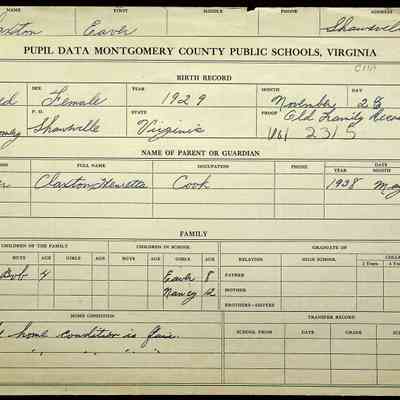 NAME FIRST MIDDLE PHONE ADDRESS
axton Eava Shawsville
PUPIL DATA MONTGOMERY COUNTY PUBLIC SCHOOLS, VIRGINIA
BIRTH RECORD
SEX YEAR MONTH DATE
ed Female 1929 November 28
P. O. STATE PROOF Old Family Recor
omery Shawsville Virginia 2315
NAME OF PARENT OR GUARDIAN
FULL NAME OCCUPATION PHONE DATE
YEAR MONTH
er Claxton, Henretta Cook 1938 May
FAMILY
CHILDREN OF THE FAMILY CHILDREN IN SCHOOL GRADUATE OF
BOYS AGE GIRLS AGE BOYS AGE GIRLS AGE RELATION HIGH SCHOOL COLLE
2 Years 4 Years
Bob 4 Eava 8 FATHER
Nancy 12 MOTHER
BROTHERS-SISTERS
HOME CONDITION TRANSFER RECORD
home condition is fair. SCHOOL FROM DATE SCHOOL TO DATE
" " " "